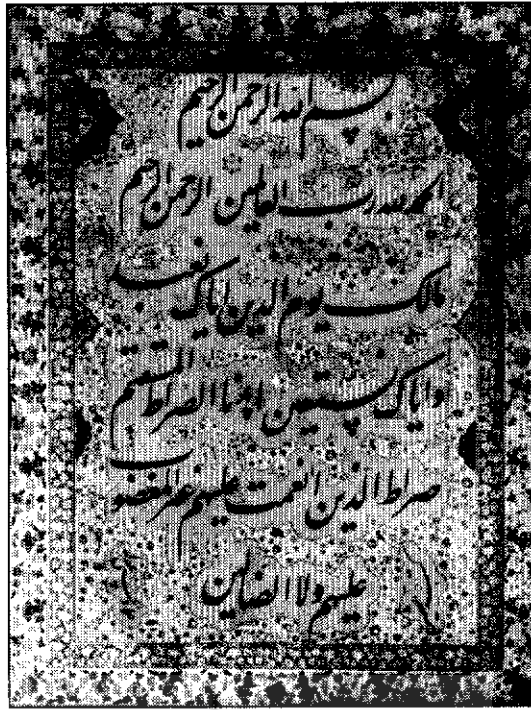 بسم الله الرحمن الرحیم
الحمد لله رب العالمین الرحمن الرحیم
مالک یوم الدین ایاک نعبد
و ایاک نستعین اهدنا الصراط المستقیم
صراط الذین انعمت علیهم غیر المغضوب
علیهم ولا الضالین